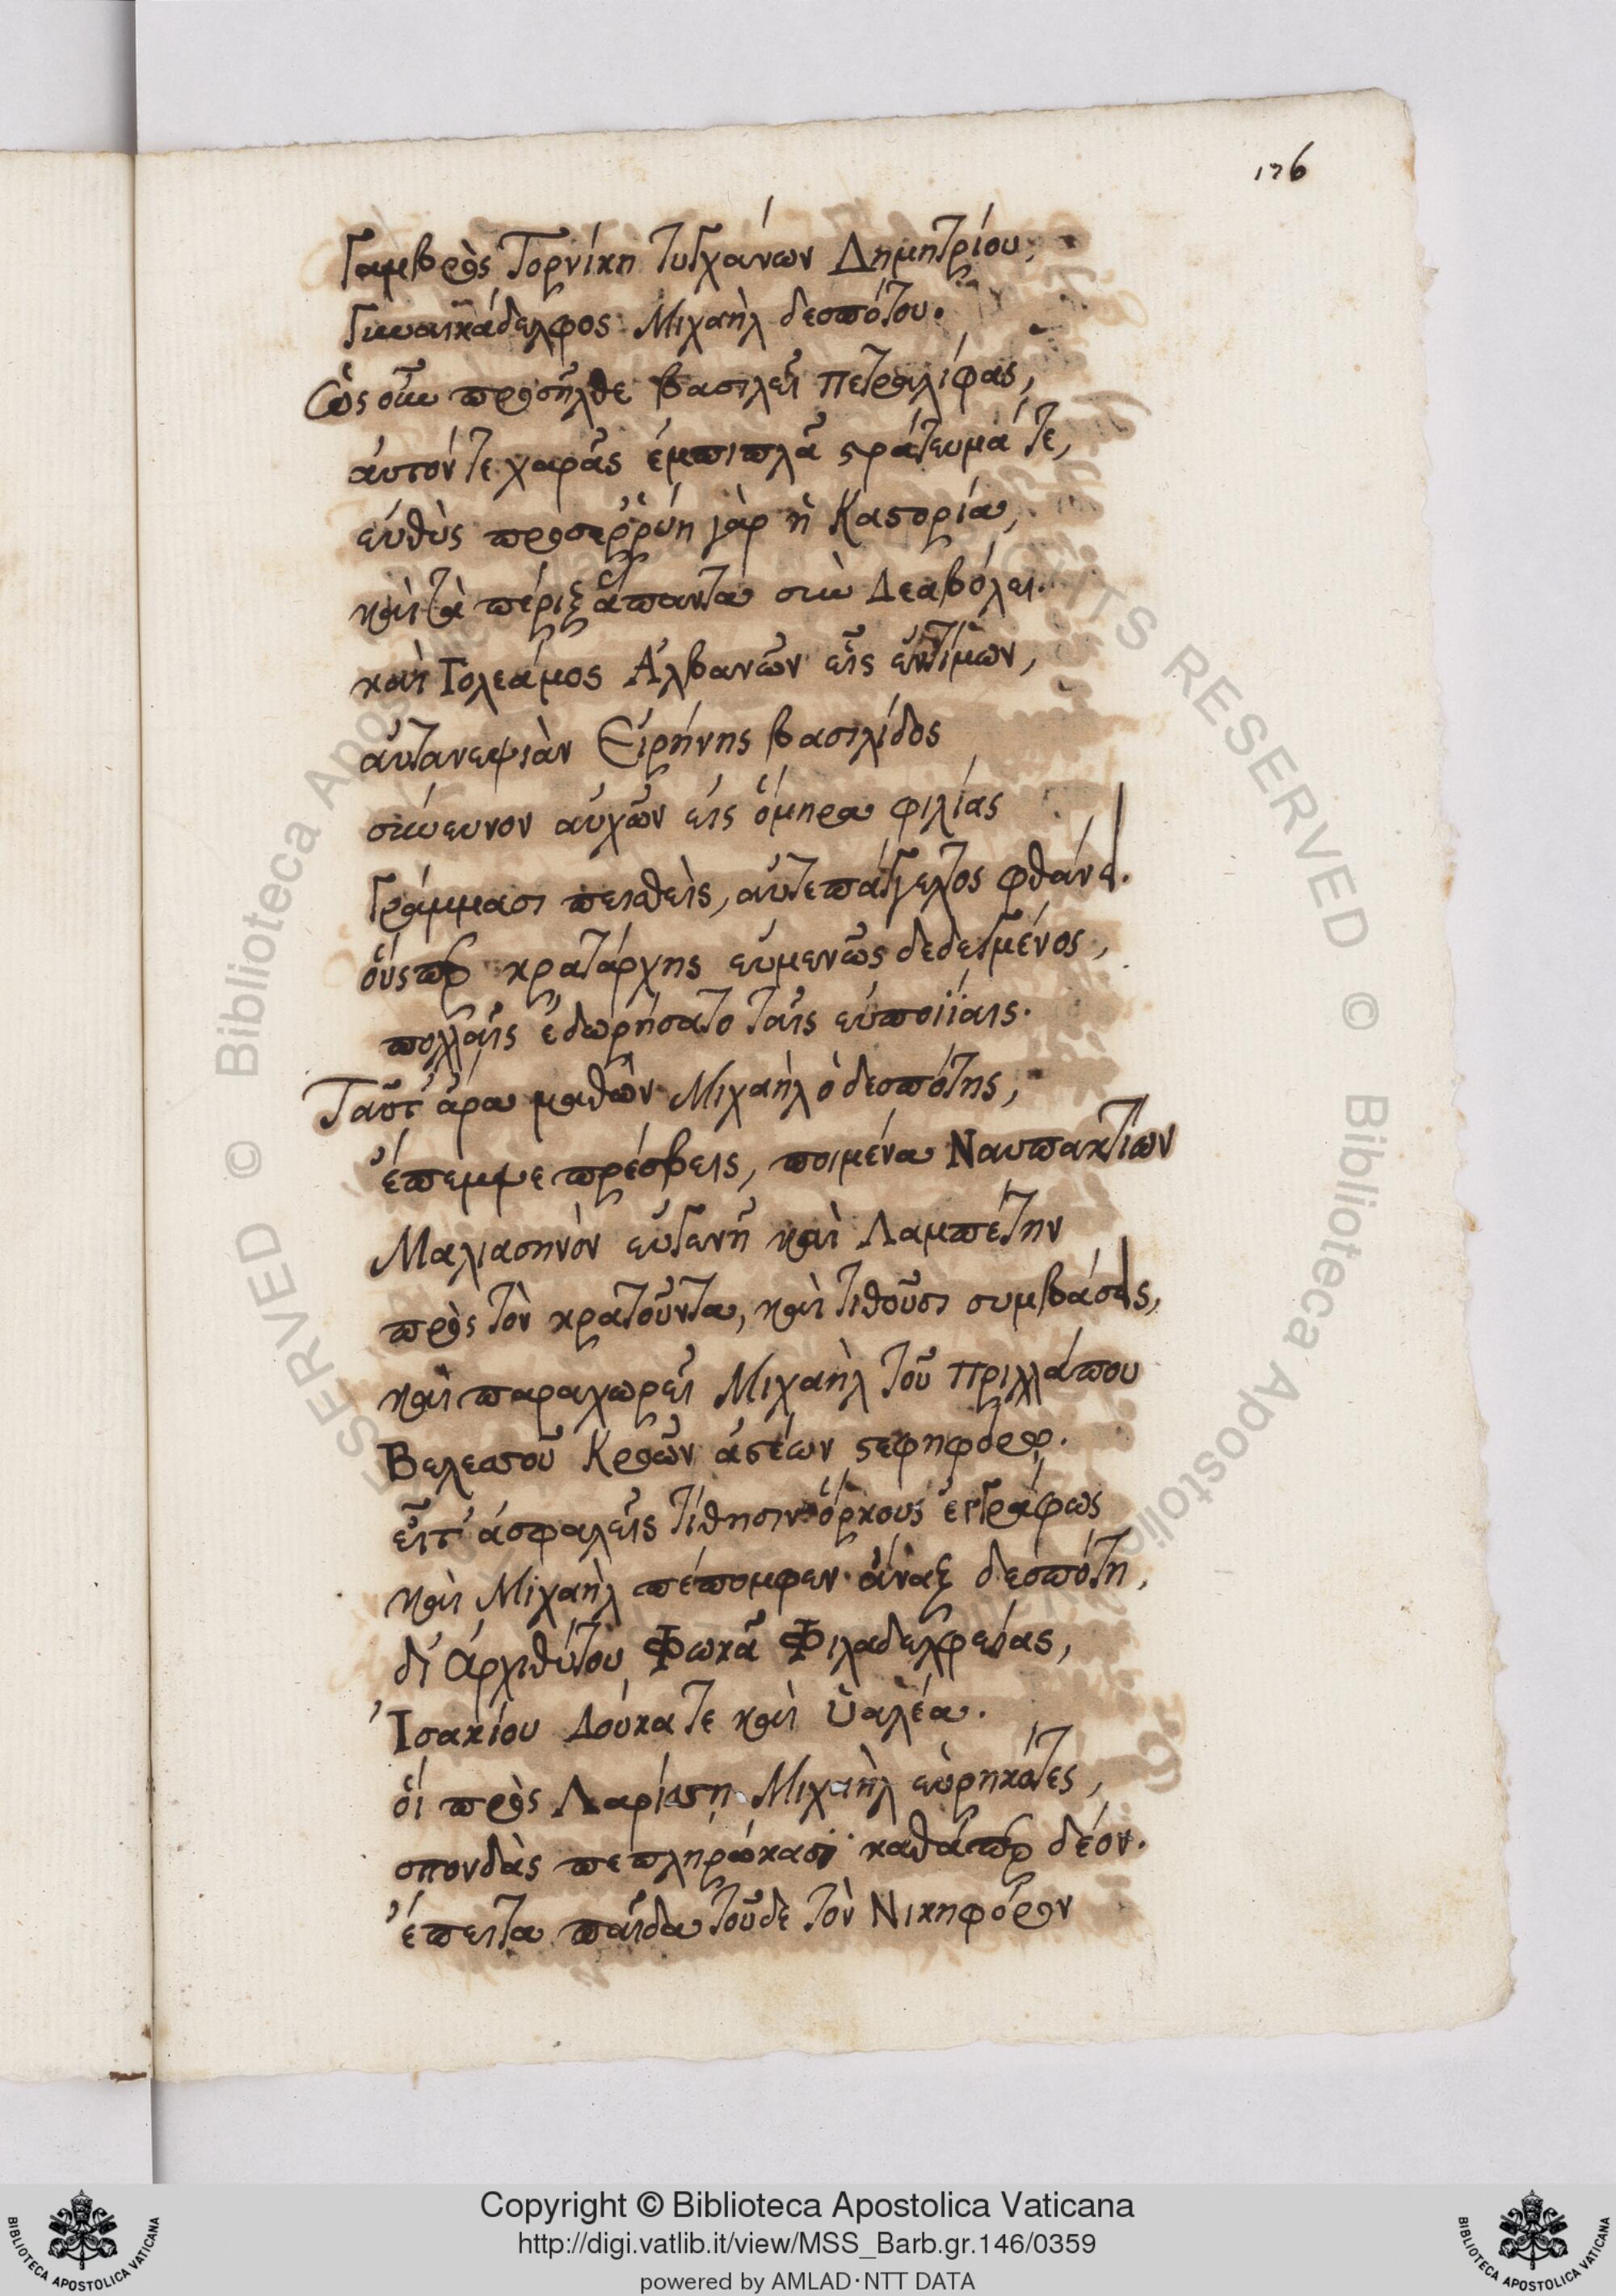 176
γαμβρὸς Τορνίκη τυγχάνων Δημητρίου,
γυναικάδελφος Μιχαὴλ δεσπότου.
Ὡς οὖν προσῆλθε βασιλεῖ Πετραλίφας,
αὐτόν τε χαρᾶς ἐμπιπλᾶ στράτευμά τε,
εὐθὺς προσερρύη γὰρ ἡ Καστορία,
καὶ τὰ πέριξ ἅπαντα σὺν Δεαβόλει.
καὶ Γολεάμος Ἀλβανῶν εἷς ἐντίμων,
αὐτανεψιὰν Εἰρήνης βασιλίδος
σύνευνον αὐχῶν εἰς ὅμηρα φιλίας
γράμμασι πεισθεὶς, αὐτεπάγγελτος φθάνει.
οὕσπερ κρατάρχης εὐμενῶς δεδεγμένος,
πολλαῖς ἐδωρήσατο ταῖς εὐποιΐαις.
Ταῦτ' ἄρα μαθὼν Μιχαὴλ ὁ δεσπότης,
ἔπεμψε πρέσβεις, ποιμένα Ναυπακτίων
Μαλιασηνὸν εὐγενῆ καὶ Λαμπέτην
πρὸς τὸν κρατοῦντα, καὶ τιθοῦσι συμβάσεις,
καὶ παραχωρεῖ Μιχαὴλ τοῦ Πριλλάπου
Βελεσσοῦ Κροῶν ἀστέων στεφηφόρῳ.
εἶτ' ἀσφαλεῖς τίθησιν ὅρκους ἐγγράφως
καὶ Μιχαὴλ πέπομφεν ἄναξ δεσπότῃ,
δι' ἀρχιθύτου Φωκᾶ Φιλαδελφείας,
Ἰσακίου Δούκα τε καὶ Ὑαλέα.
οἱ πρὸς Λαρίσσῃ Μιχαὴλ εὑρηκότες,
σπονδὰς πεπληρώκασι καθάπερ δέον.
ἔπειτα παῖδα τοῦδε τὸν Νικηφόρον
Copyright © Biblioteca Apostolica Vaticana
http://digi.vatlib.it/view/MSS_Barb.gr.146/0359
powered by AMLAD·NTT DATA